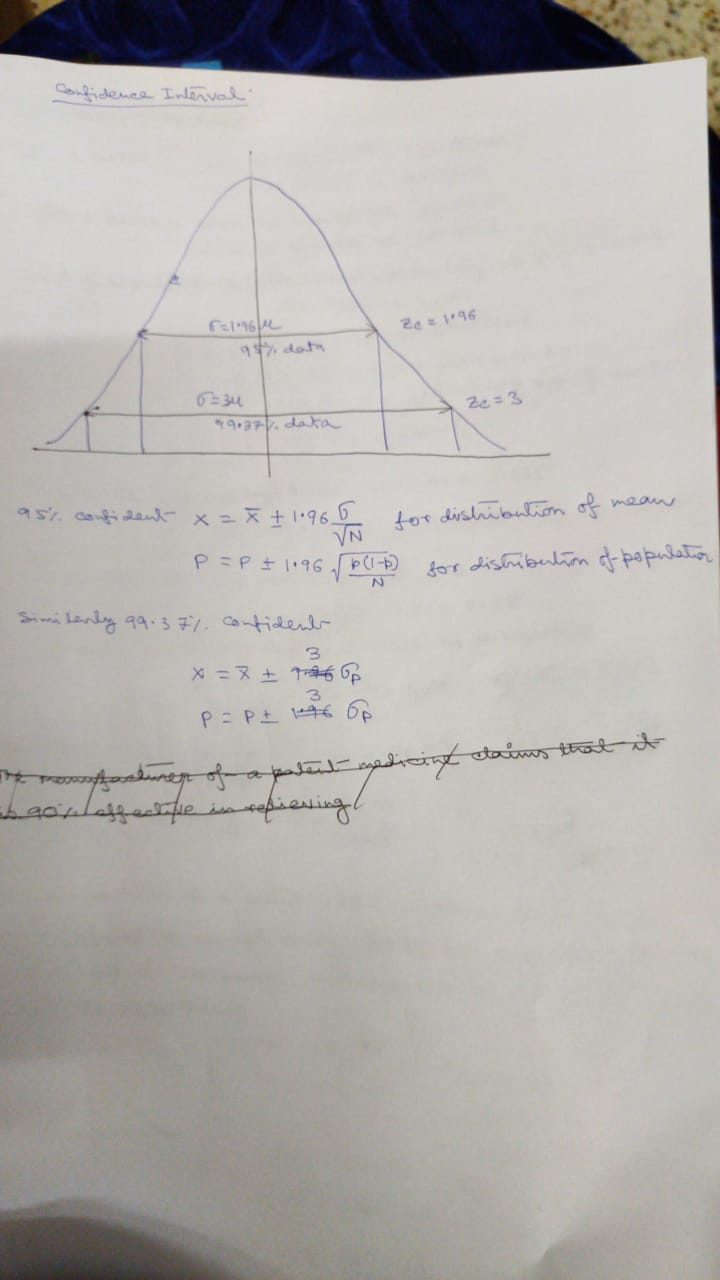 Confidence Interval
σ=1.96μ
Zc = 1.96
95% data
σ=3μ
Zc = 3
99.37% data
95% confident x = x̄ ± 1.96 σ/√N for distribution of mean
P = P ± 1.96 √(p(1-p)/N) for distribution of population
Similarly 99.37% confident
3
x = x̄ ± 1.96 σp
3
P = P ± 1.96 σp
The manufacturer of a patent medicine claims that it
is 90% effective in relieving